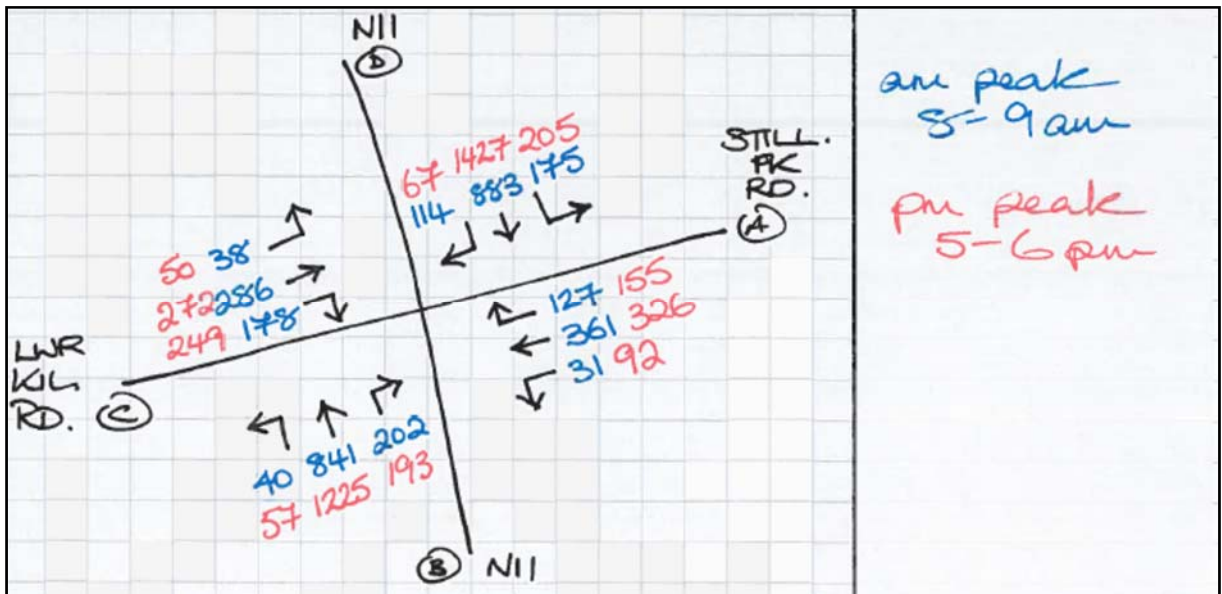 N11
D
67 1427 205
114 883 175
STILL.
PK
RD.
A
50 38
272 286
249 178
127 155
361 326
31 92
LWR
KIL.
RD.
C
40 841 202
57 1225 193
B N11
am peak
8-9am
pm peak
5-6pm